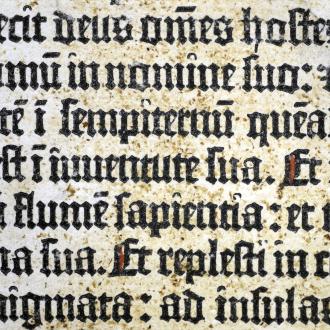 ecit deus om̄es hostes
mū in nomine suo:
tē ī sempiternū quēa
est ī iuuentute sua. Et
flumē sapientia: et
ma sua Et replesti in c
nigmata: ad insulas